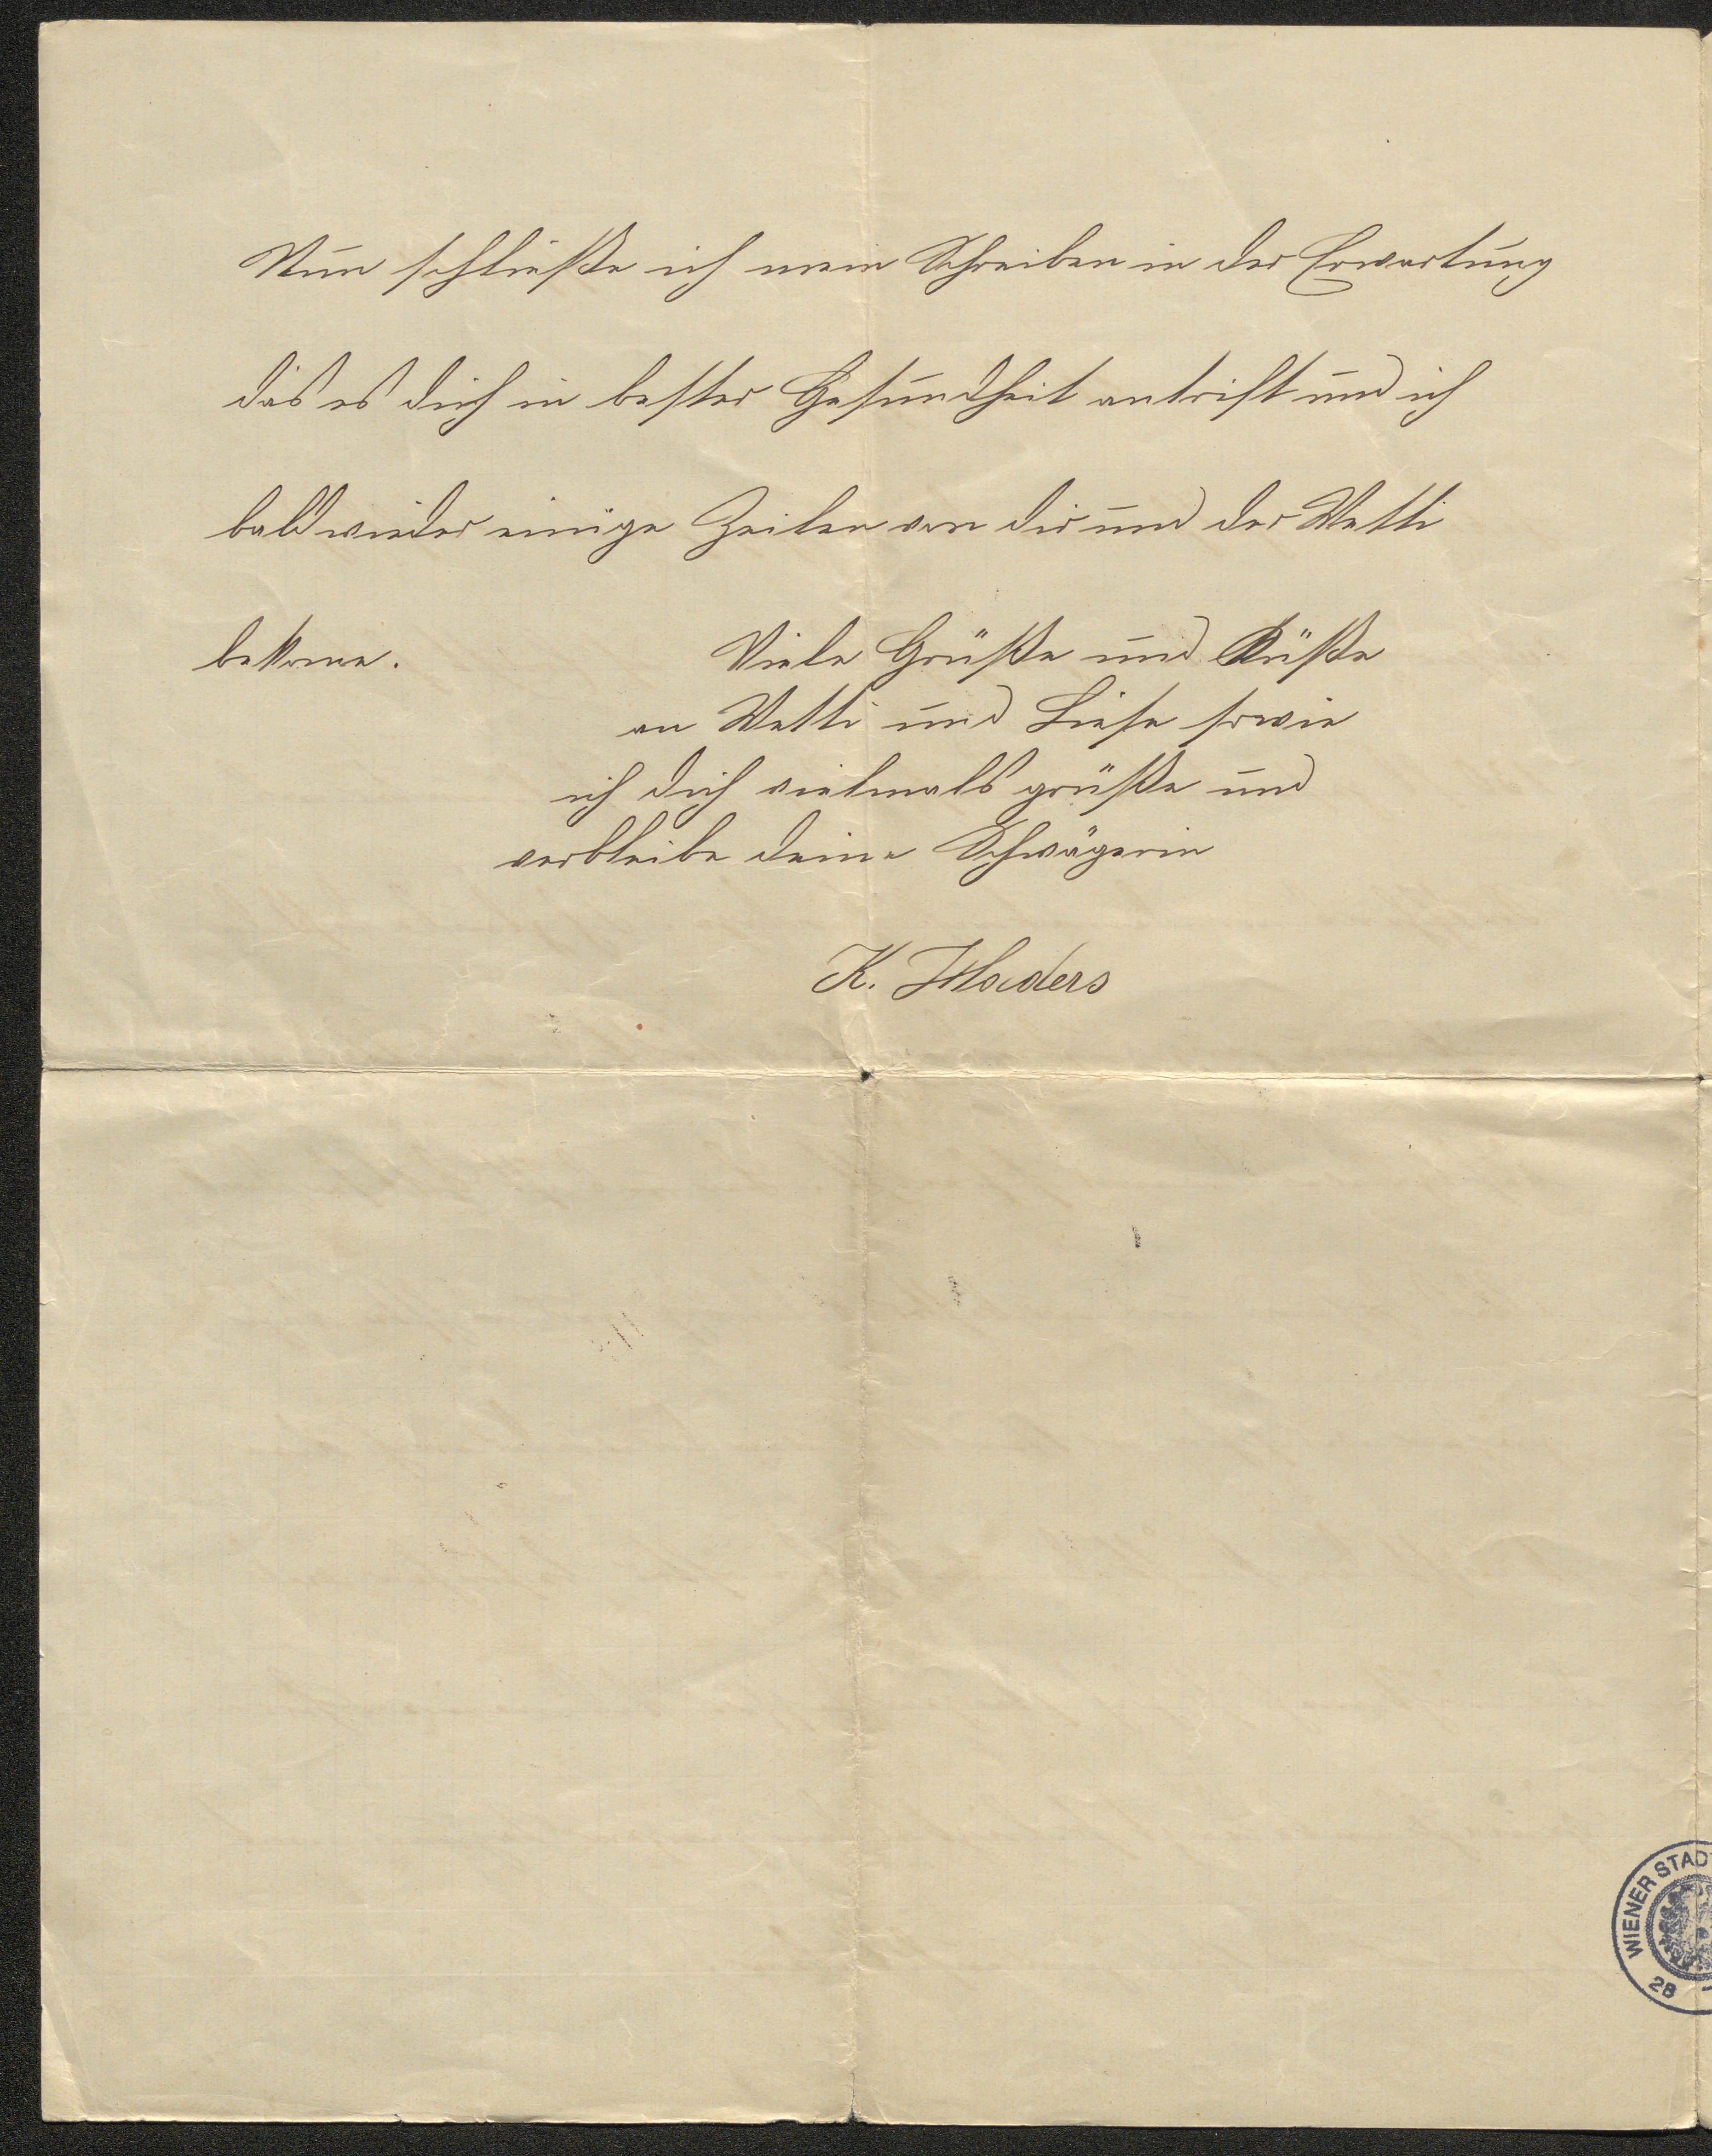 Nun schließe ich mein Schreiben in der Erwartung
das es dich in bester Gesundheit antrift und ich
bald wieder einige Zeilen von dir und der Wetti
bekome.
Viele Grüße und Küße
an Wetti und Liese sowie
ich dich vielmals grüße und
verbleibe deine Schwägerin
K.
WIENER STADT
28